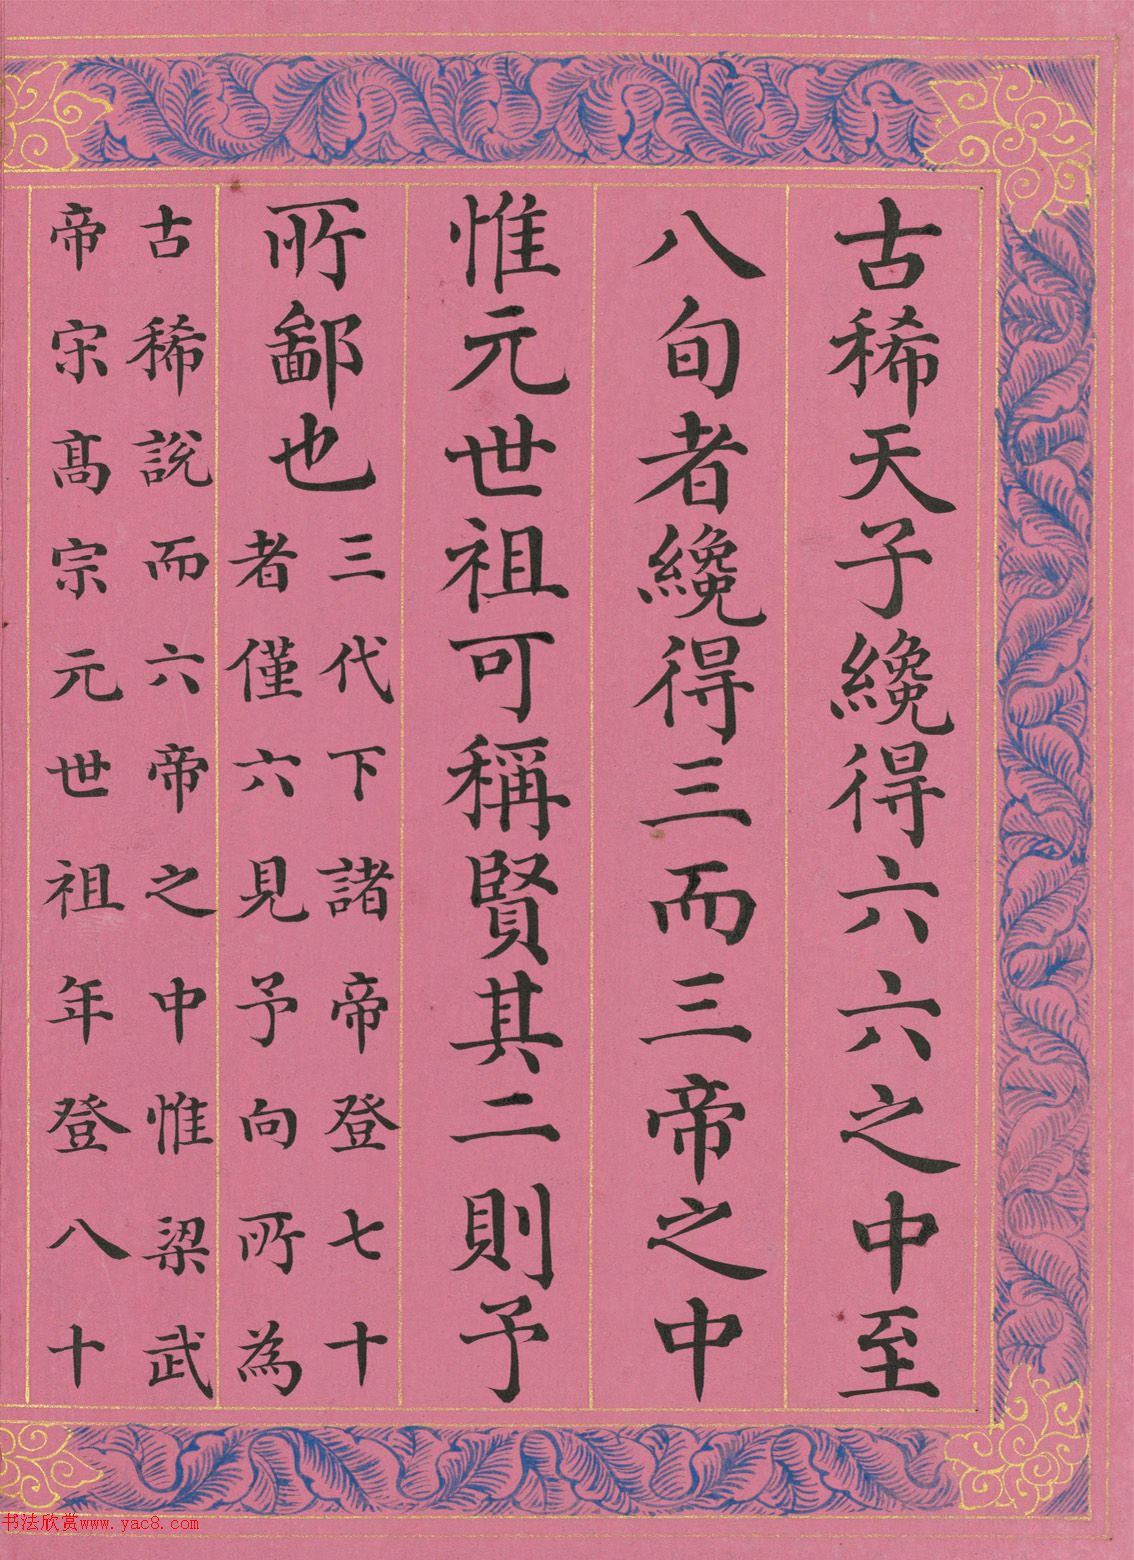 古稀天子纔得六六之中至
八旬者纔得三而三帝之中
惟元世祖可稱賢其二則予
所鄙也
三代下諸帝登七十
者僅六見予向所為
古稀說而六帝之中惟梁武
帝宋高宗元世祖年登八十
书法欣赏www.yac8.com